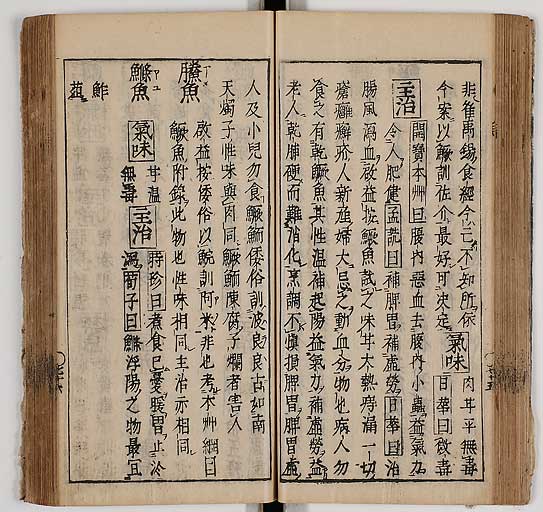 非隹禹錫食經今云不知所依
今案以鱖訓佐介最好可決定 氣味 肉甘平無毒
主治 開寶本艸曰腹內惡血去腹內小蟲益氣力
令人肥健孟詵曰補脾胃補虛勞日華曰治
腸風瀉血啟益按鱖魚試之味甘大熱痔漏一切
瘡癬疥人新產婦大忌之動血分物也病人勿
食之有乾鱖魚其性溫補起陽益氣力補虛勞益
老人乾脯硬而難消化烹調不慎損脾胃脾胃虛
人及小兒勿食鱖鰤倭俗訓波良良古如南
天燭子性味與肉同鱖鰤陳腐子爛者害人
鰧魚 啟益按倭俗以鯇訓阿米非也考本艸綱目
鱖魚附錄此物也性味相同主治亦相同
鰷魚 氣味 甘溫
無毒 主治 時珍曰煮食已憂暖胃止冷
瀉荀子曰鰷浮陽之物最宜
鮓